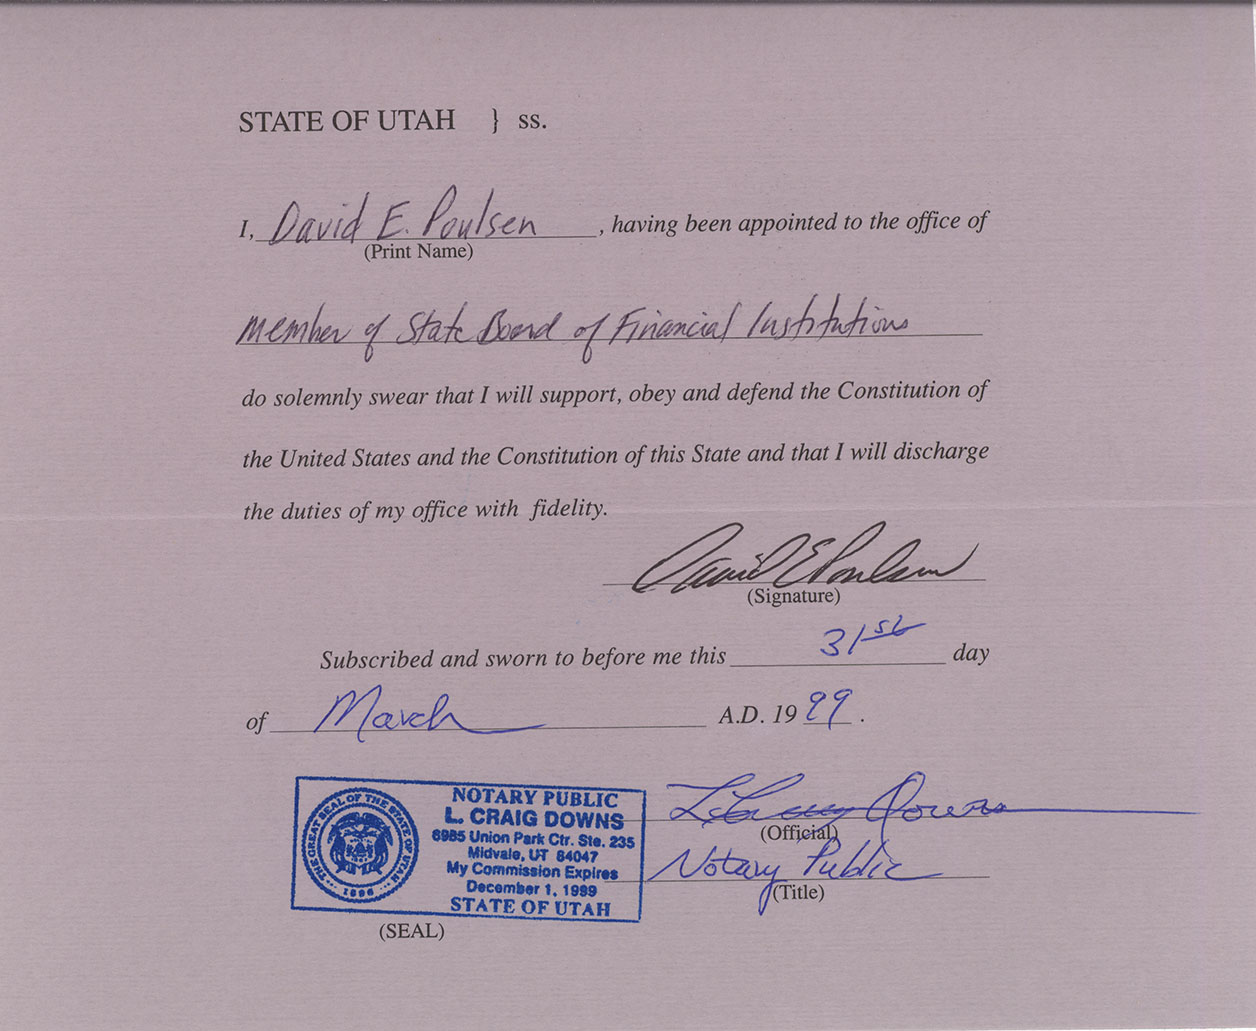 STATE OF UTAH } ss.
I, David E. Poulsen , having been appointed to the office of
(Print Name)
Member of State Board of Financial Institutions
do solemnly swear that I will support, obey and defend the Constitution of
the United States and the Constitution of this State and that I will discharge
the duties of my office with fidelity.
David E Poulsen
(Signature)
Subscribed and sworn to before me this 31st day
of March A.D. 1999 .
L. Craig Downs
(Official)
Notary Public
(Title)
THE GREAT SEAL OF THE STATE OF UTAH
1896
NOTARY PUBLIC
L. CRAIG DOWNS
6985 Union Park Ctr. Ste. 235
Midvale, UT 84047
My Commission Expires
December 1, 1999
STATE OF UTAH
(SEAL)